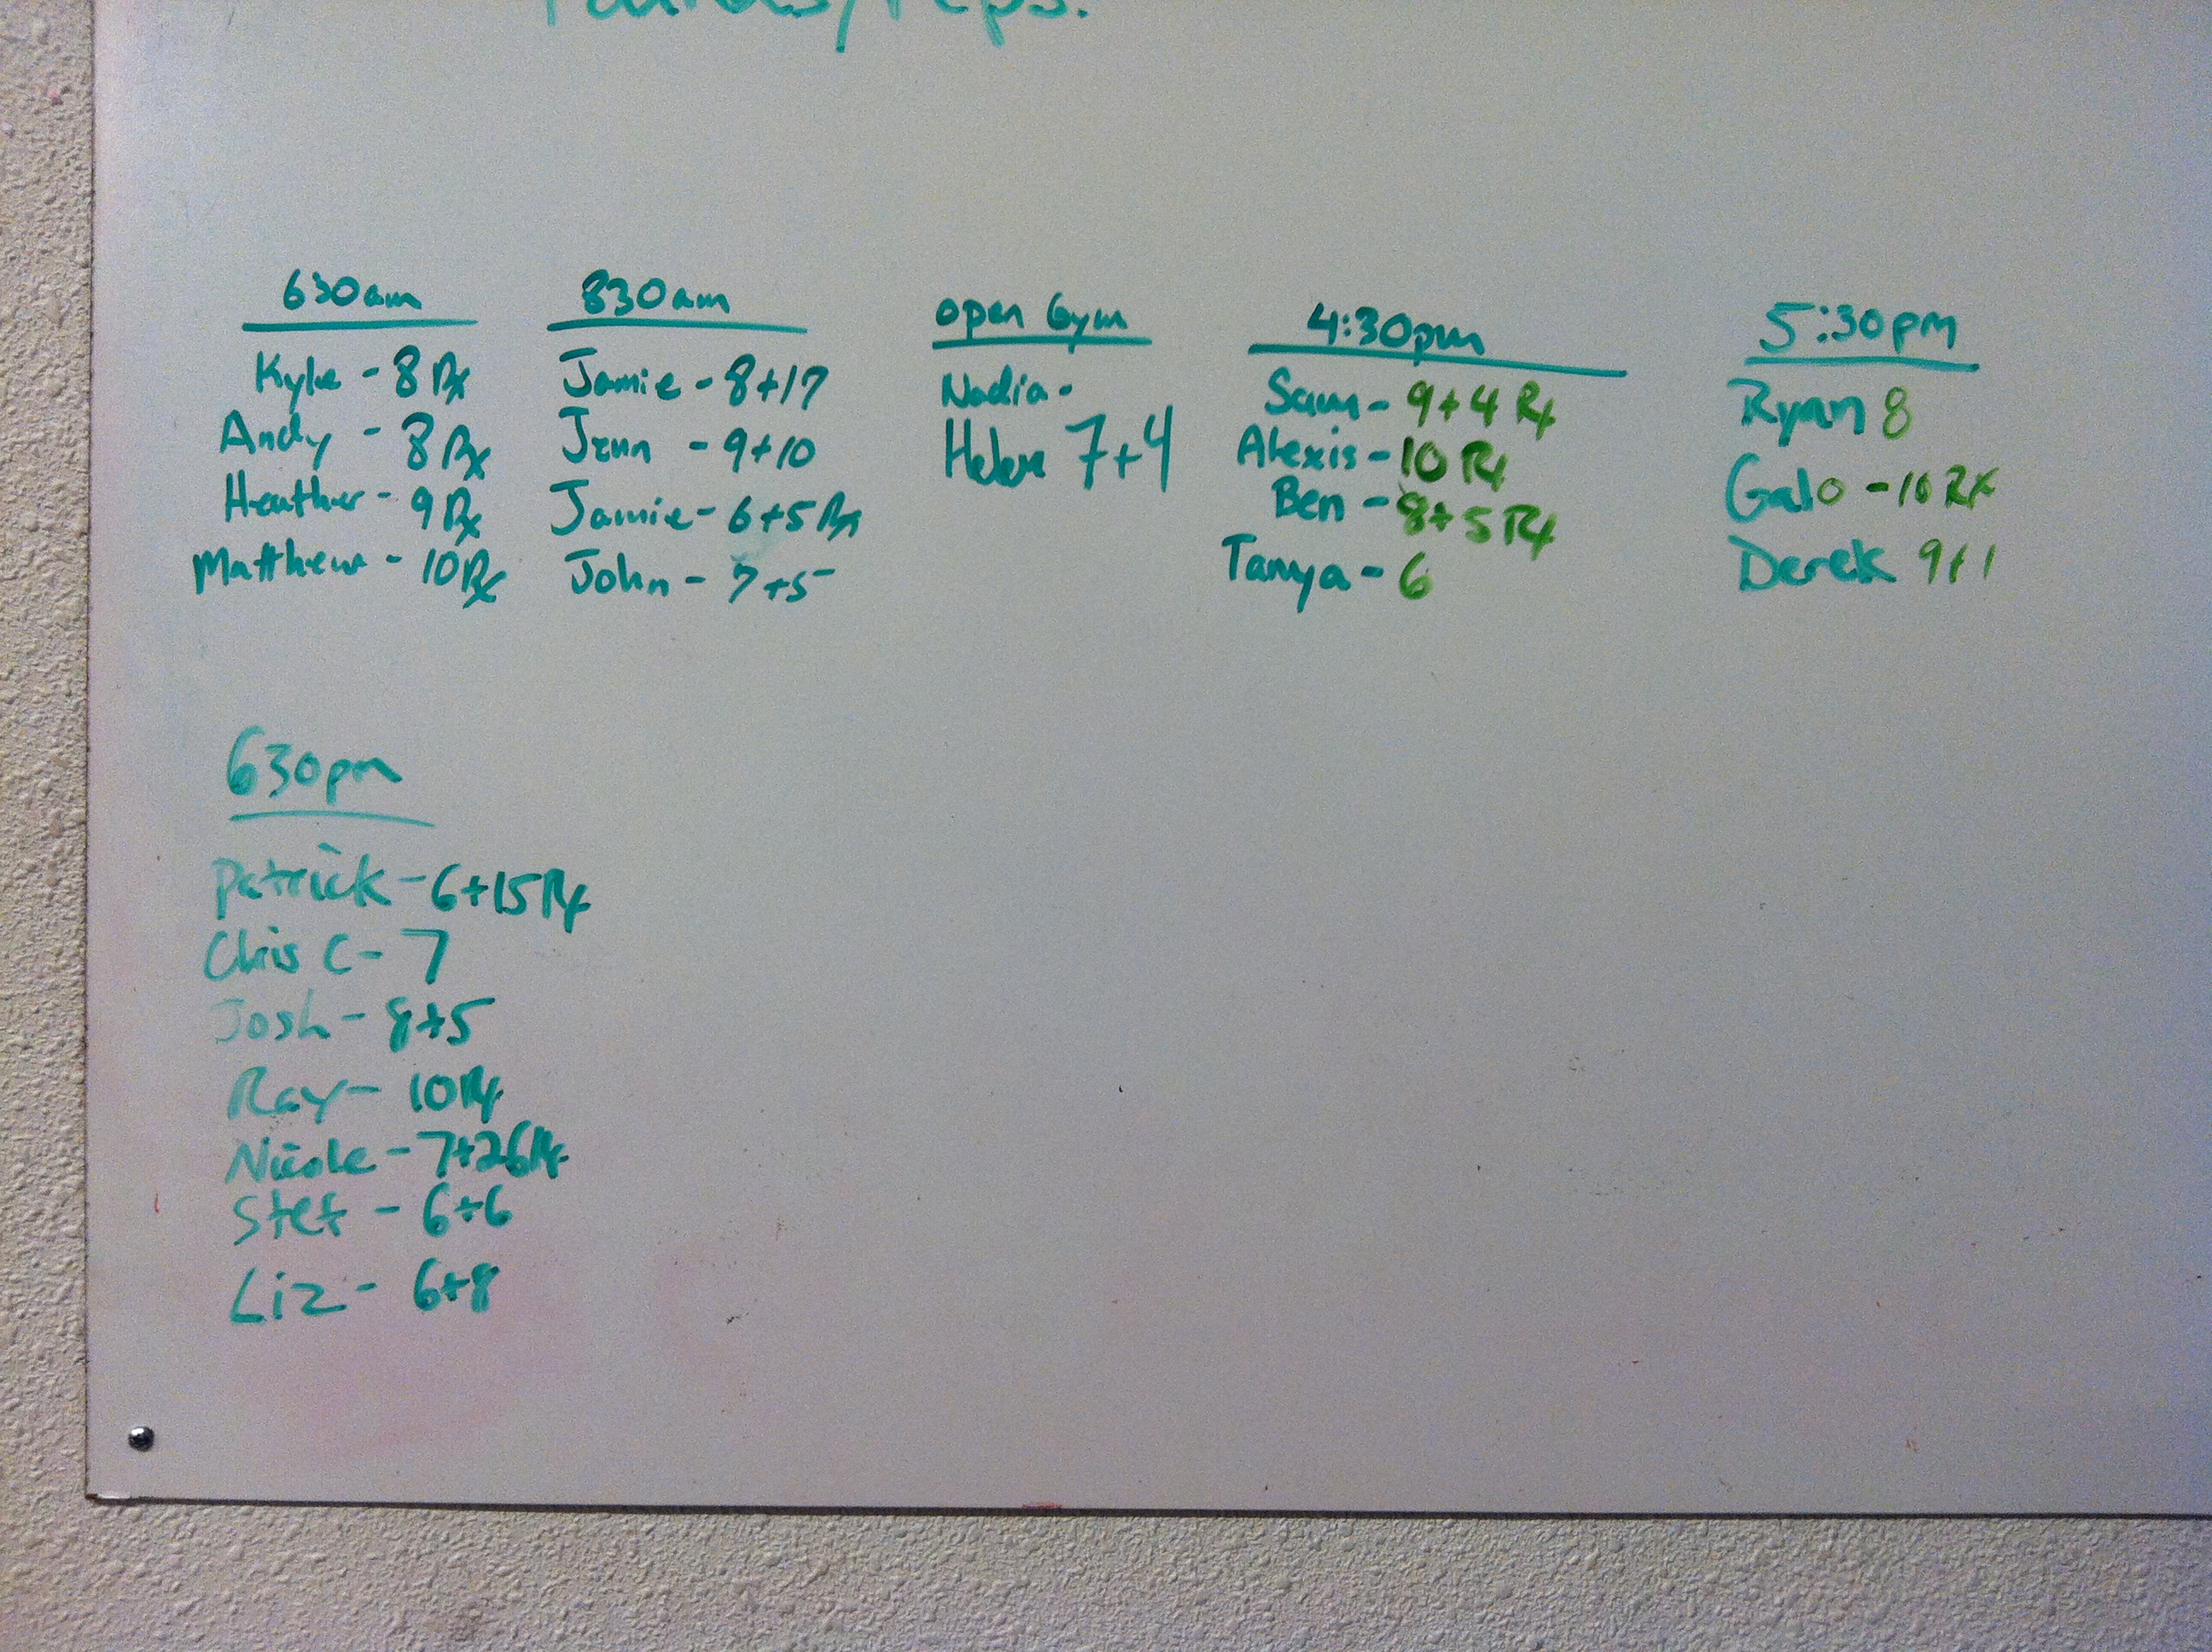 reps.
630am
Kyle - 8 Rx
Andy - 8 Rx
Heather - 9 Rx
Matthew - 10 Rx
830am
Jamie - 8+17
Jenn - 9+10
Jamie - 6+5 Rx
John - 7+5
open Gym
Nadia -
Helen 7+4
4:30pm
Sam - 9+4 Rx
Alexis - 10 Rx
Ben - 8+5 Rx
Tanya - 6
5:30pm
Ryan 8
Galo - 10 Rx
Derek 9+1
630pm
Patrick - 6+15 Rx
Chris C - 7
Josh - 8+5
Ray - 10 Rx
Nicole - 7+26 Rx
Stef - 6+6
Liz - 6+8